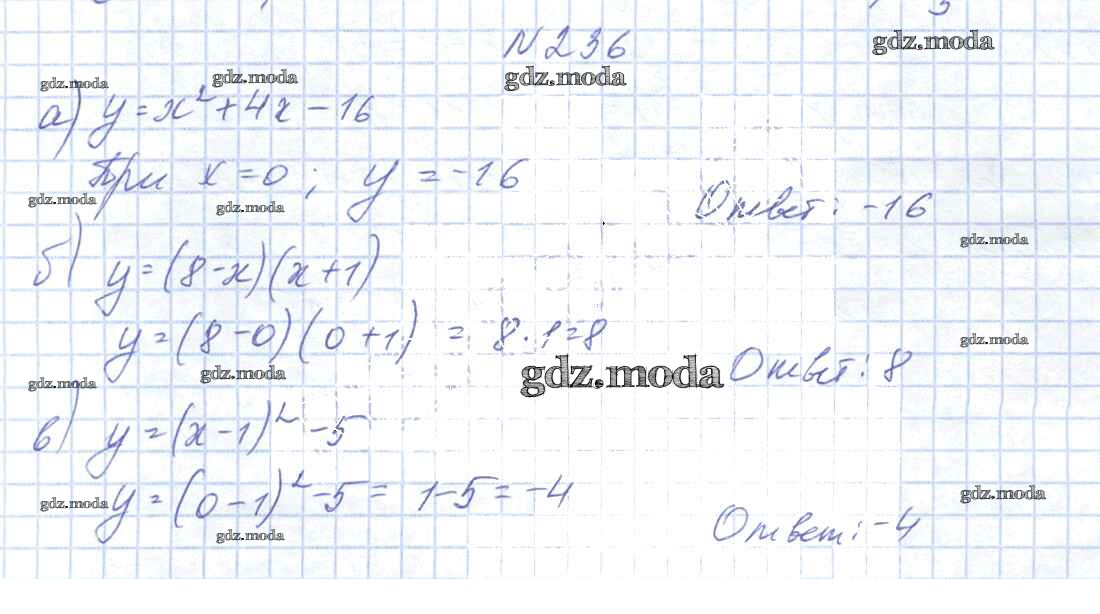 N 236
gdz.moda
gdz.moda gdz.moda gdz.moda
а) y = x² + 4x - 16
При x = 0 ; y = -16
gdz.moda gdz.moda
Ответ: -16
gdz.moda
б) y = (8 - x)(x + 1)
y = (8 - 0)(0 + 1) = 8 · 1 = 8
gdz.moda
gdz.moda gdz.moda gdz.moda Ответ: 8
в) y = (x - 1)² - 5
y = (0 - 1)² - 5 = 1 - 5 = -4
gdz.moda gdz.moda
gdz.moda
Ответ: -4